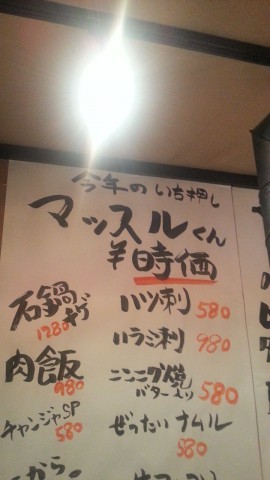 今年のいち押し
マッスルくん
¥時価
ハツ刺 580
ハラミ刺 980
ニンニク焼
バター入り 580
ぜったいナムル
580
石鍋
1280
肉飯
980
チャンジャSP
580
から。